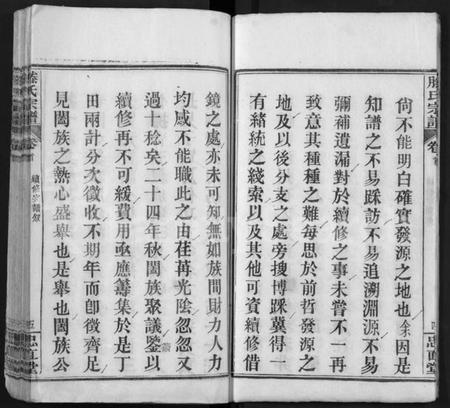 尚不能明白確實發源之地也余因是
知譜之不易踩訪不易追溯淵源不易
彌補遺漏對於續修之事未嘗不一再
致意其種種之難每思於前哲發源之
地及以後分支之處旁搜博踩冀得一
有緒統之綫索以及其他可資續修借
滕氏宗譜
卷首
忠直堂
鏡之處亦未可知無如族間財力人力
均咸不能職此之由荏苒光陰忽忽又
過十稔矣二十四年秋闔族聚議鑒以
續修再不可緩費用亟應籌集於是丁
田兩計分次徵收不期年而卽徵齊足
見闔族之熱心盛舉也是舉也闔族公
滕氏宗譜
卷首
續修宗譜叙
五
忠直堂